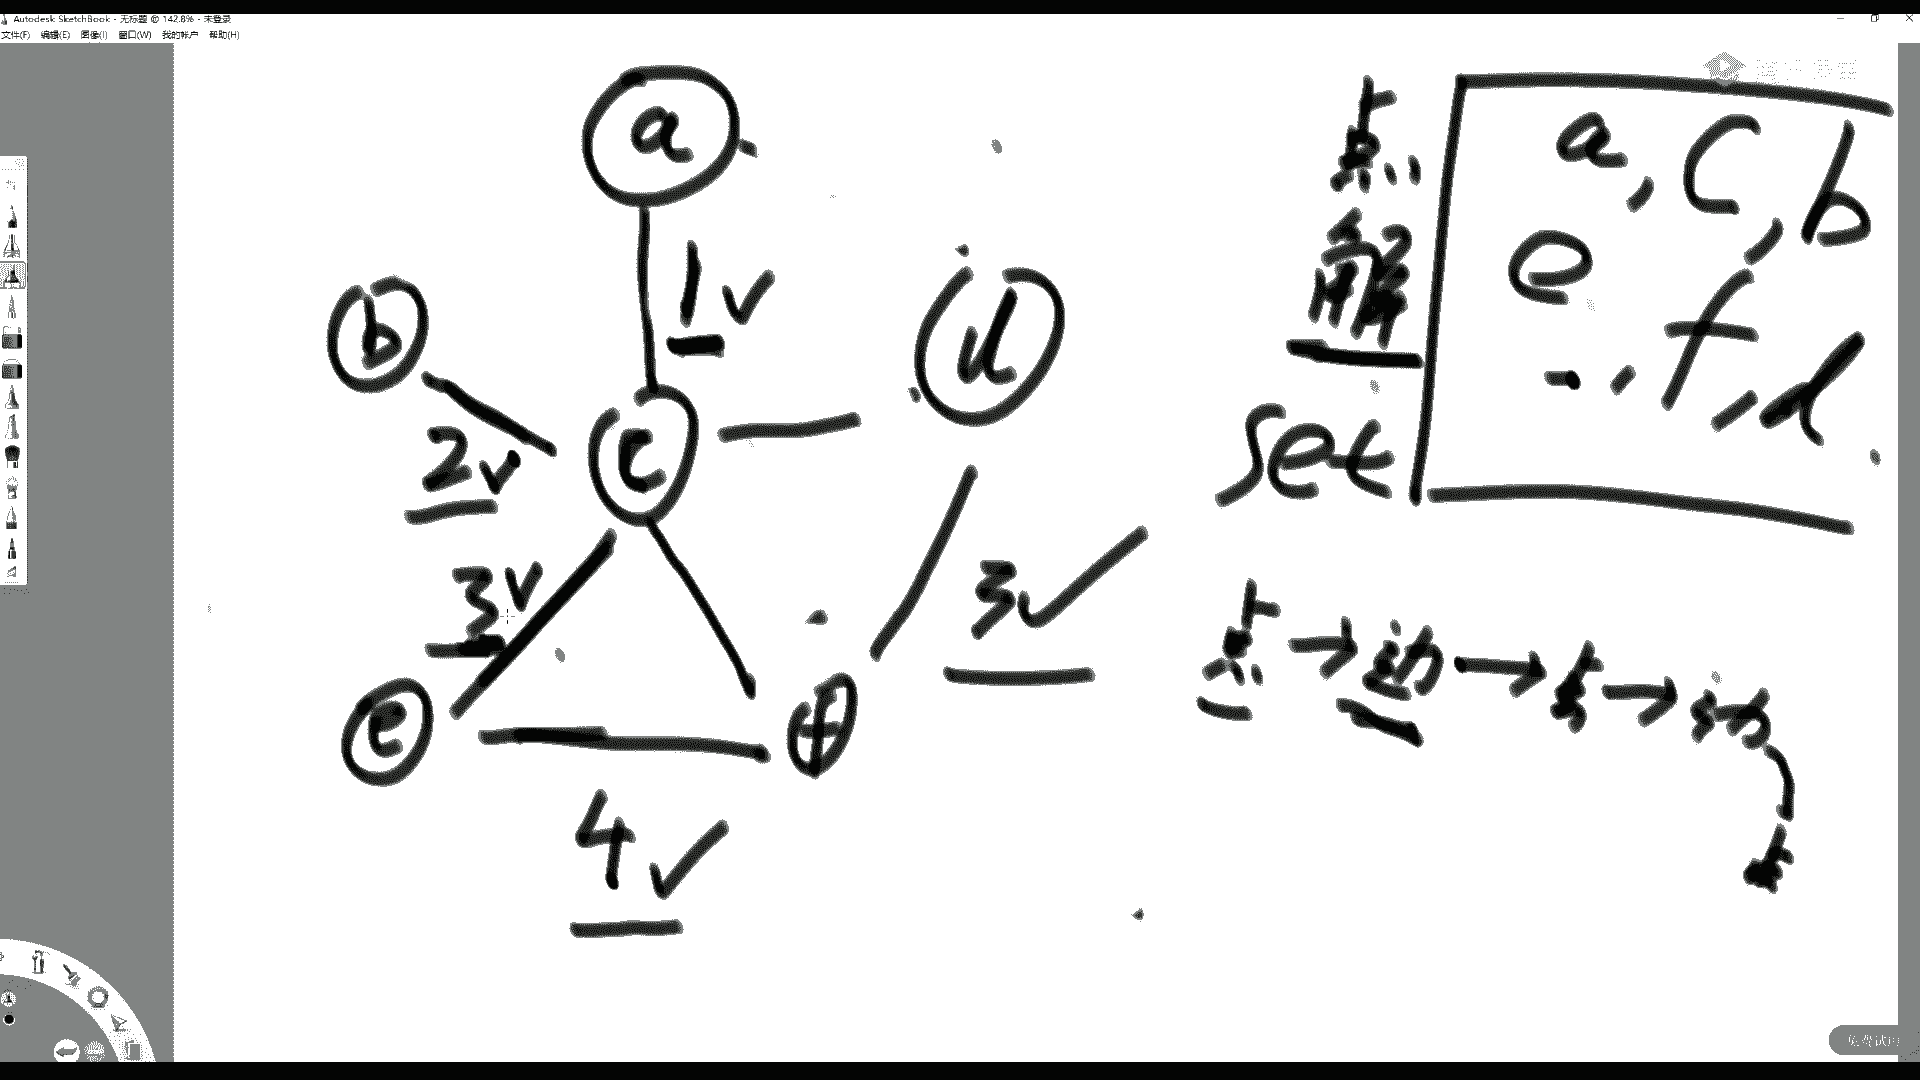 Autodesk SketchBook - 无标题 @ 142.8% - 未登录
文件(F) 编辑(E) 图像(I) 窗口(W) 我的帐户 帮助(H)
a
1
b
d
c
2
3
3
e
f
4
点
解
set
a, c, b
e
, f, d
点→边→点→边
点